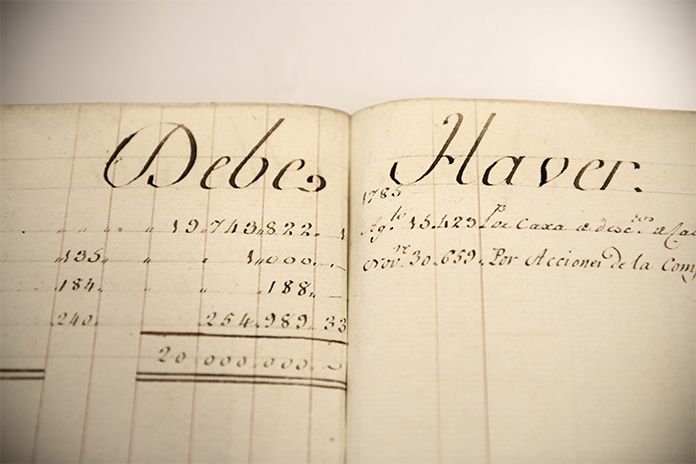 Debe.
19,743,822. 1
135 1,000.
184 188.
240. 254,989. 33
20,000,000.
Haver.
1785
Ag.to 15.423 Por Caxa
Nov.re 30.659. Por Acciones de la Comp